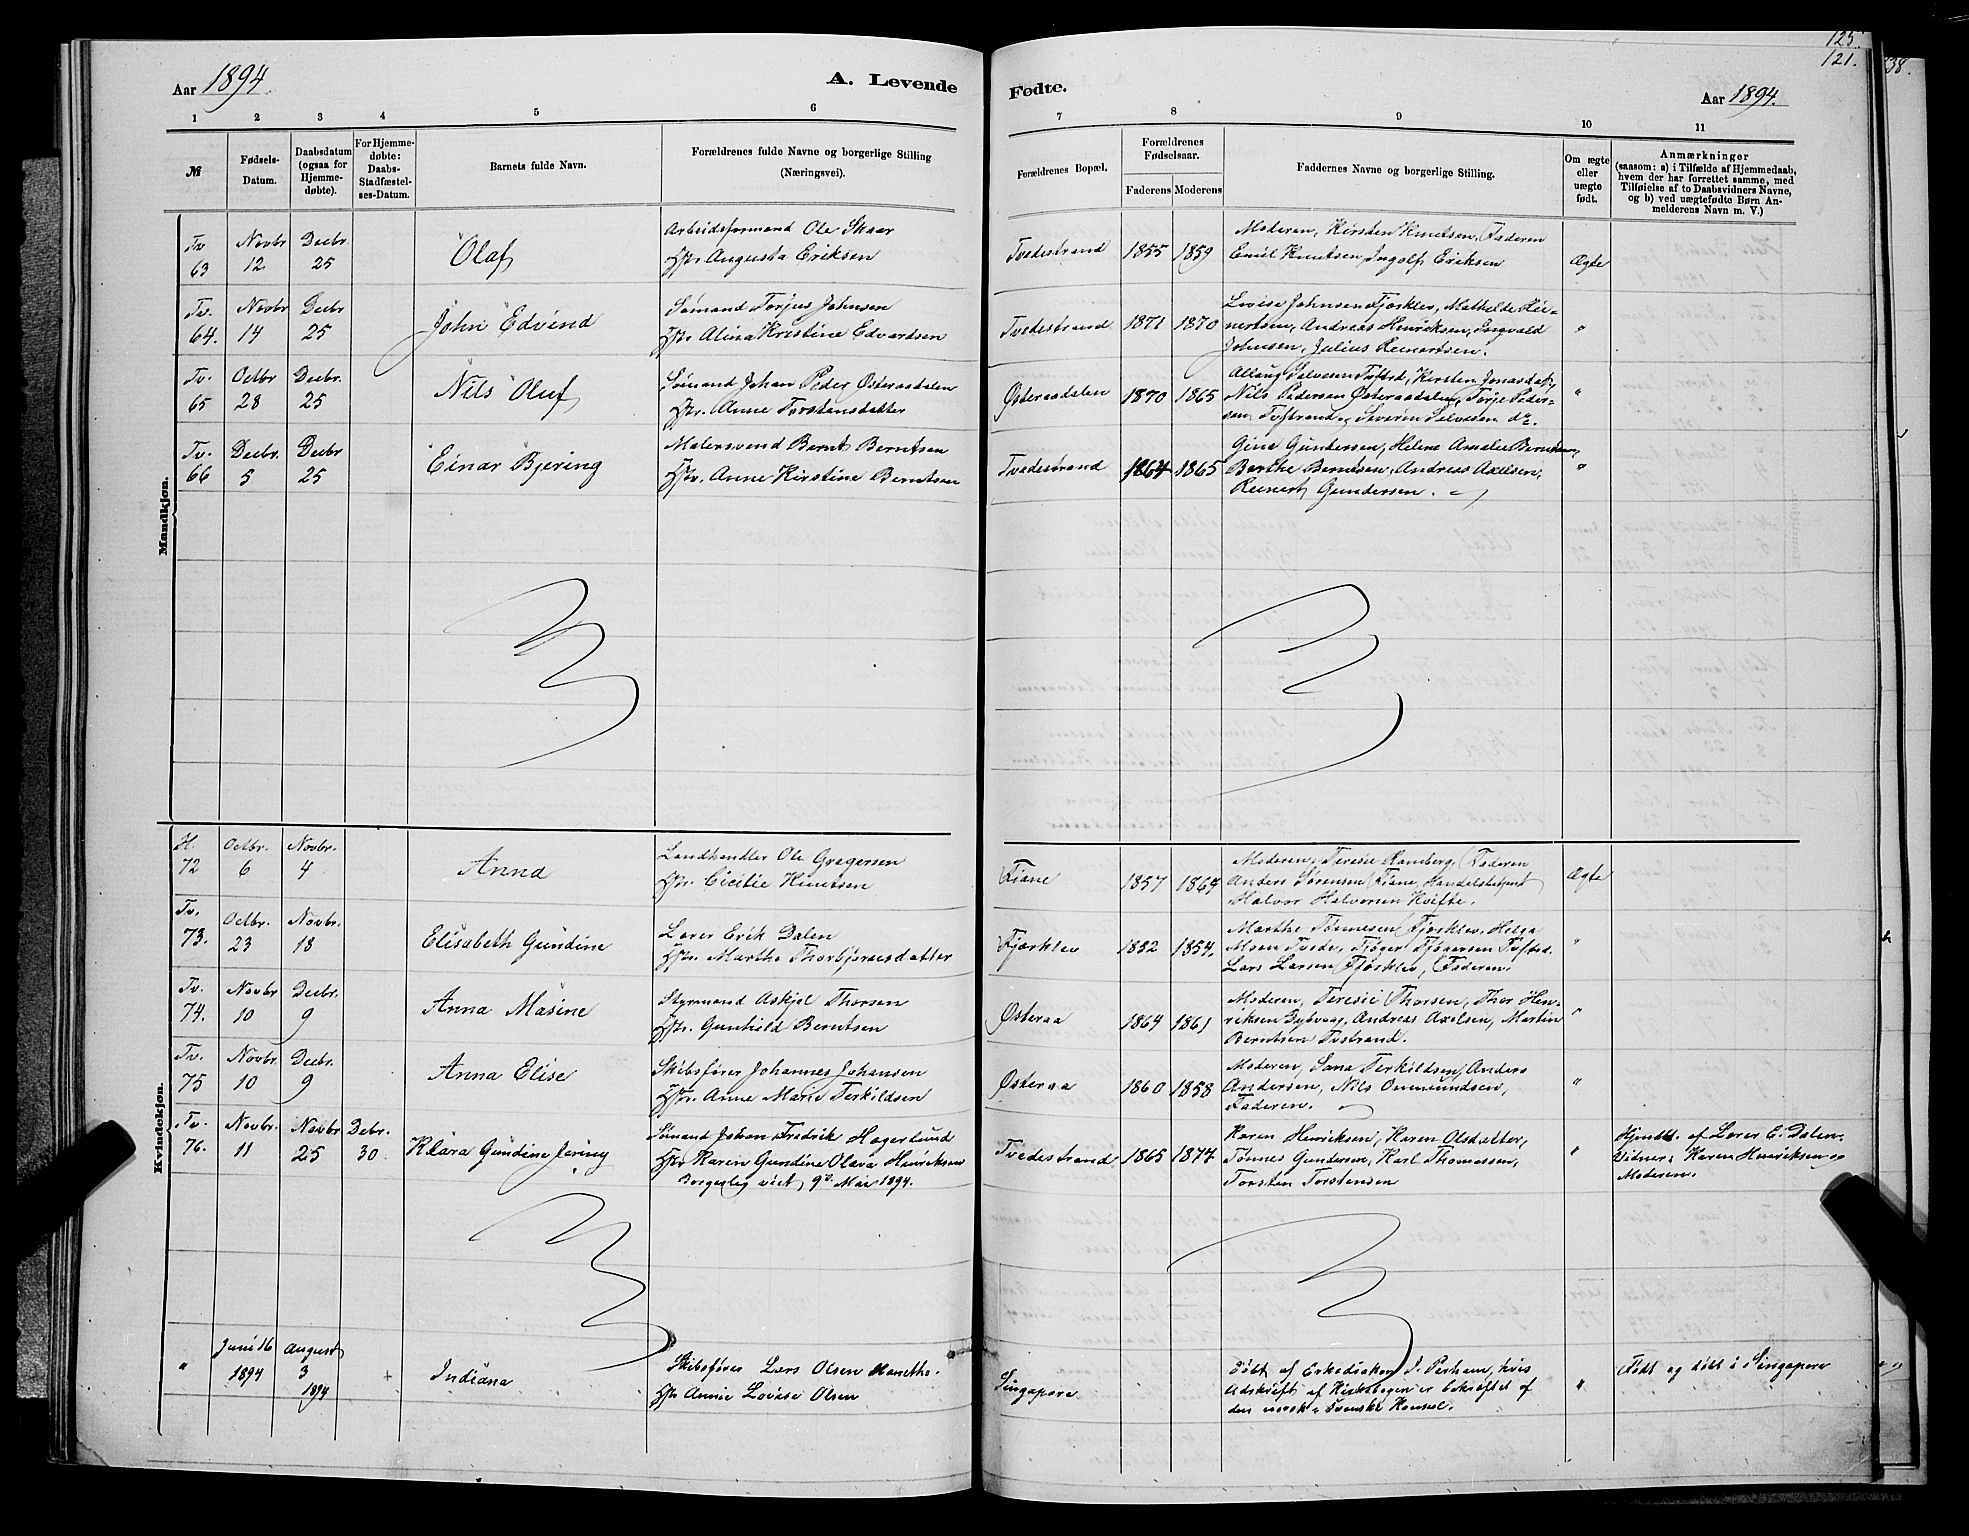 125.
121.
38.
Aar 1894.
A. Levende
Fødte.
Aar 1894.
1 2 3 4 5 6
7 8 9 10 11
№
Fødsels-
Datum.
Daabsdatum
(ogsaa for
Hjemme-
døbte).
For Hjemme-
døbte:
Daabs-
Stadfæstel-
ses-Datum.
Barnets fulde Navn.
Forældrenes fulde Navne og borgerlige Stilling
(Næringsvei).
Forældrenes Bopæl.
Forældrenes
Fødselsaar.
Faderens Moderens
Faddernes Navne og borgerlige Stilling.
Om ægte
eller
uægte
født.
Anmærkninger
(saasom: a) i Tilfælde af Hjemmedaab,
hvem der har forrettet samme, med
Tilføielse af to Daabsvidners Navne,
og b) ved uægtefødte Børn An-
melderens Navn m. V.)
Mandkjøn.
Tv 63
Novbr 12
Decbr. 25
Olaf
Arbeidsformand Ole Skaar
Hstr. Augusta Eriksen
Tvedestrand 1855 1859
Moderen, Kirsten Knutsen, Faderen
Emil Knutsen, Ingolf Eriksen
Ægte
Tv. 64.
Novbr 14
Decbr 25
John Edvind
Sømand Torjus Johnsen
Hstr. Alina Kristine Edvardsen
Tvedestrand 1871 1870
Lovise Johnsen Fjorklev, Mathilde Rei-
nertsen, Andreas Henriksen, Ingvald
Johnsen, Julius Reinertsen.
"
Tv. 65
Octbr 28
Decbr. 25
Nils Oluf
Sømand Johan Peder Østeraadalen
Hstr. Anne Torstensdatter
Østeraadalen 1870 1865
Aslaug Selvesen Tvstrd, Kirsten Jonasdatr,
Nils Pedersen Østeraadalen, Torje Peder-
sen Tvstrand, Severin Selvesen do.
"
Tv. 66
Decbr. 5
Decbr 25
Einar Bjering
Malersvend Bernt Berntsen
Hstr. Anne Kirstine Berntsen
Tvedestrand 1864 1865
Gina Gundersen, Helene Amalie Berntsen,
Berthe Berntsen, Andreas Axelsen,
Reinert Gundersen.
"
Kvindekjøn.
H. 72
Octbr. 6
Novbr. 4
Anna
Landhandler Ole Gregersen
Hstr. Cicilie Knutsen
Fiane 1857 1864
Moderen, Teresie Ramberg, Faderen
Anders Sørensen Fiane, Handelsbetjent
Halvor Halvorsen Kvifte.
Ægte
Tv. 73.
Octbr. 23
Novbr. 18
Elisabeth Gundine
Lærer Erik Dalen
Hstr. Marthe Thorbjørnsdatter
Fjorklev 1832 1854.
Marthe Tønnesen Fjorklev, Helga
Moen Tvede, Tjøger Tjøgersen Tvstrd.
Lars Larsen Fjorklev, Faderen.
"
Tv. 74.
Novbr 10
Decbr. 9
Anna Masine
Styrmand Askjel Thorsen
Hstr. Gunhild Berntsen
Østeraa 1864 1861
Moderen, Teresie Thorsen, Thor Hen-
riksen Dybvaag, Andreas Axelsen, Martin
Berntsen Tvstrand.
"
Tv. 75
Novbr 10
Decbr. 9
Anna Elise
Skibsfører Johannes Johansen
Hstr. Anne Marie Terkildsen
Østeraa 1860 1858
Moderen, Sana Terkildsen, Anders
Andersen, Nils Onmundsen,
Faderen.
"
Tv. 76.
Novbr. 11
Novbr 25
Debr. 30
Klara Gundine Jering
Sømand Johan Fredrik Hagerlund
Hstr Karen Gundine Olava Henriksen
Borgerlig viet 9de Mai 1894.
Tvedestrand 1865 1874
Karen Henriksen, Karen Olsdatter,
Tønnes Gundersen, Karl Thomassen,
Torsten Torstensen
"
Hjmdt. af Lærer E. Dalen.
Vidner: Karen Henriksen og
Moderen.
"
Juni 16 1894
August 3 1894
Indiana
Skibsfører Lars Olsen
Hstr Annie Lovise Olsen
Singapore
Døbt af Erkediakon J. Perham, hvis
Udskrift af Kirkebogen er bekræftet af
den norsk-svenske Konsul.
"
Født og døbt i Singapore